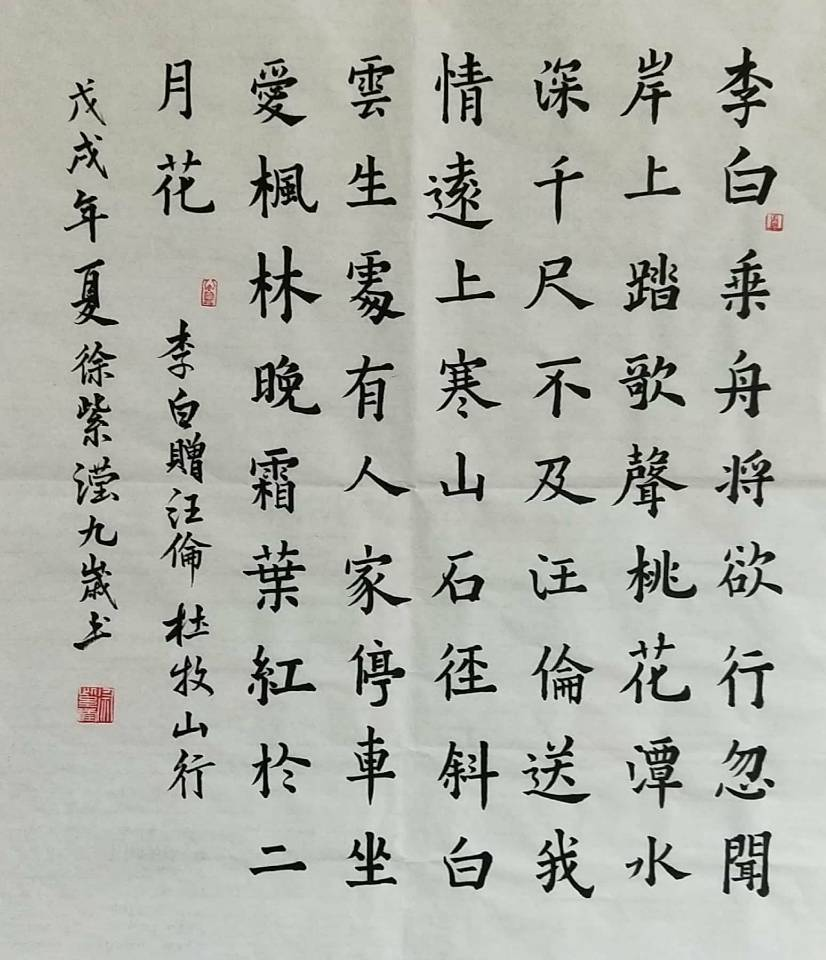 李白乗舟将欲行忽聞
岸上踏歌聲桃花潭水
深千尺不及汪倫送我
情遠上寒山石徑斜白
雲生處有人家停車坐
愛楓林晚霜葉紅於二
月花
李白贈汪倫 杜牧山行
戊戌年夏徐紫瀅九歲书